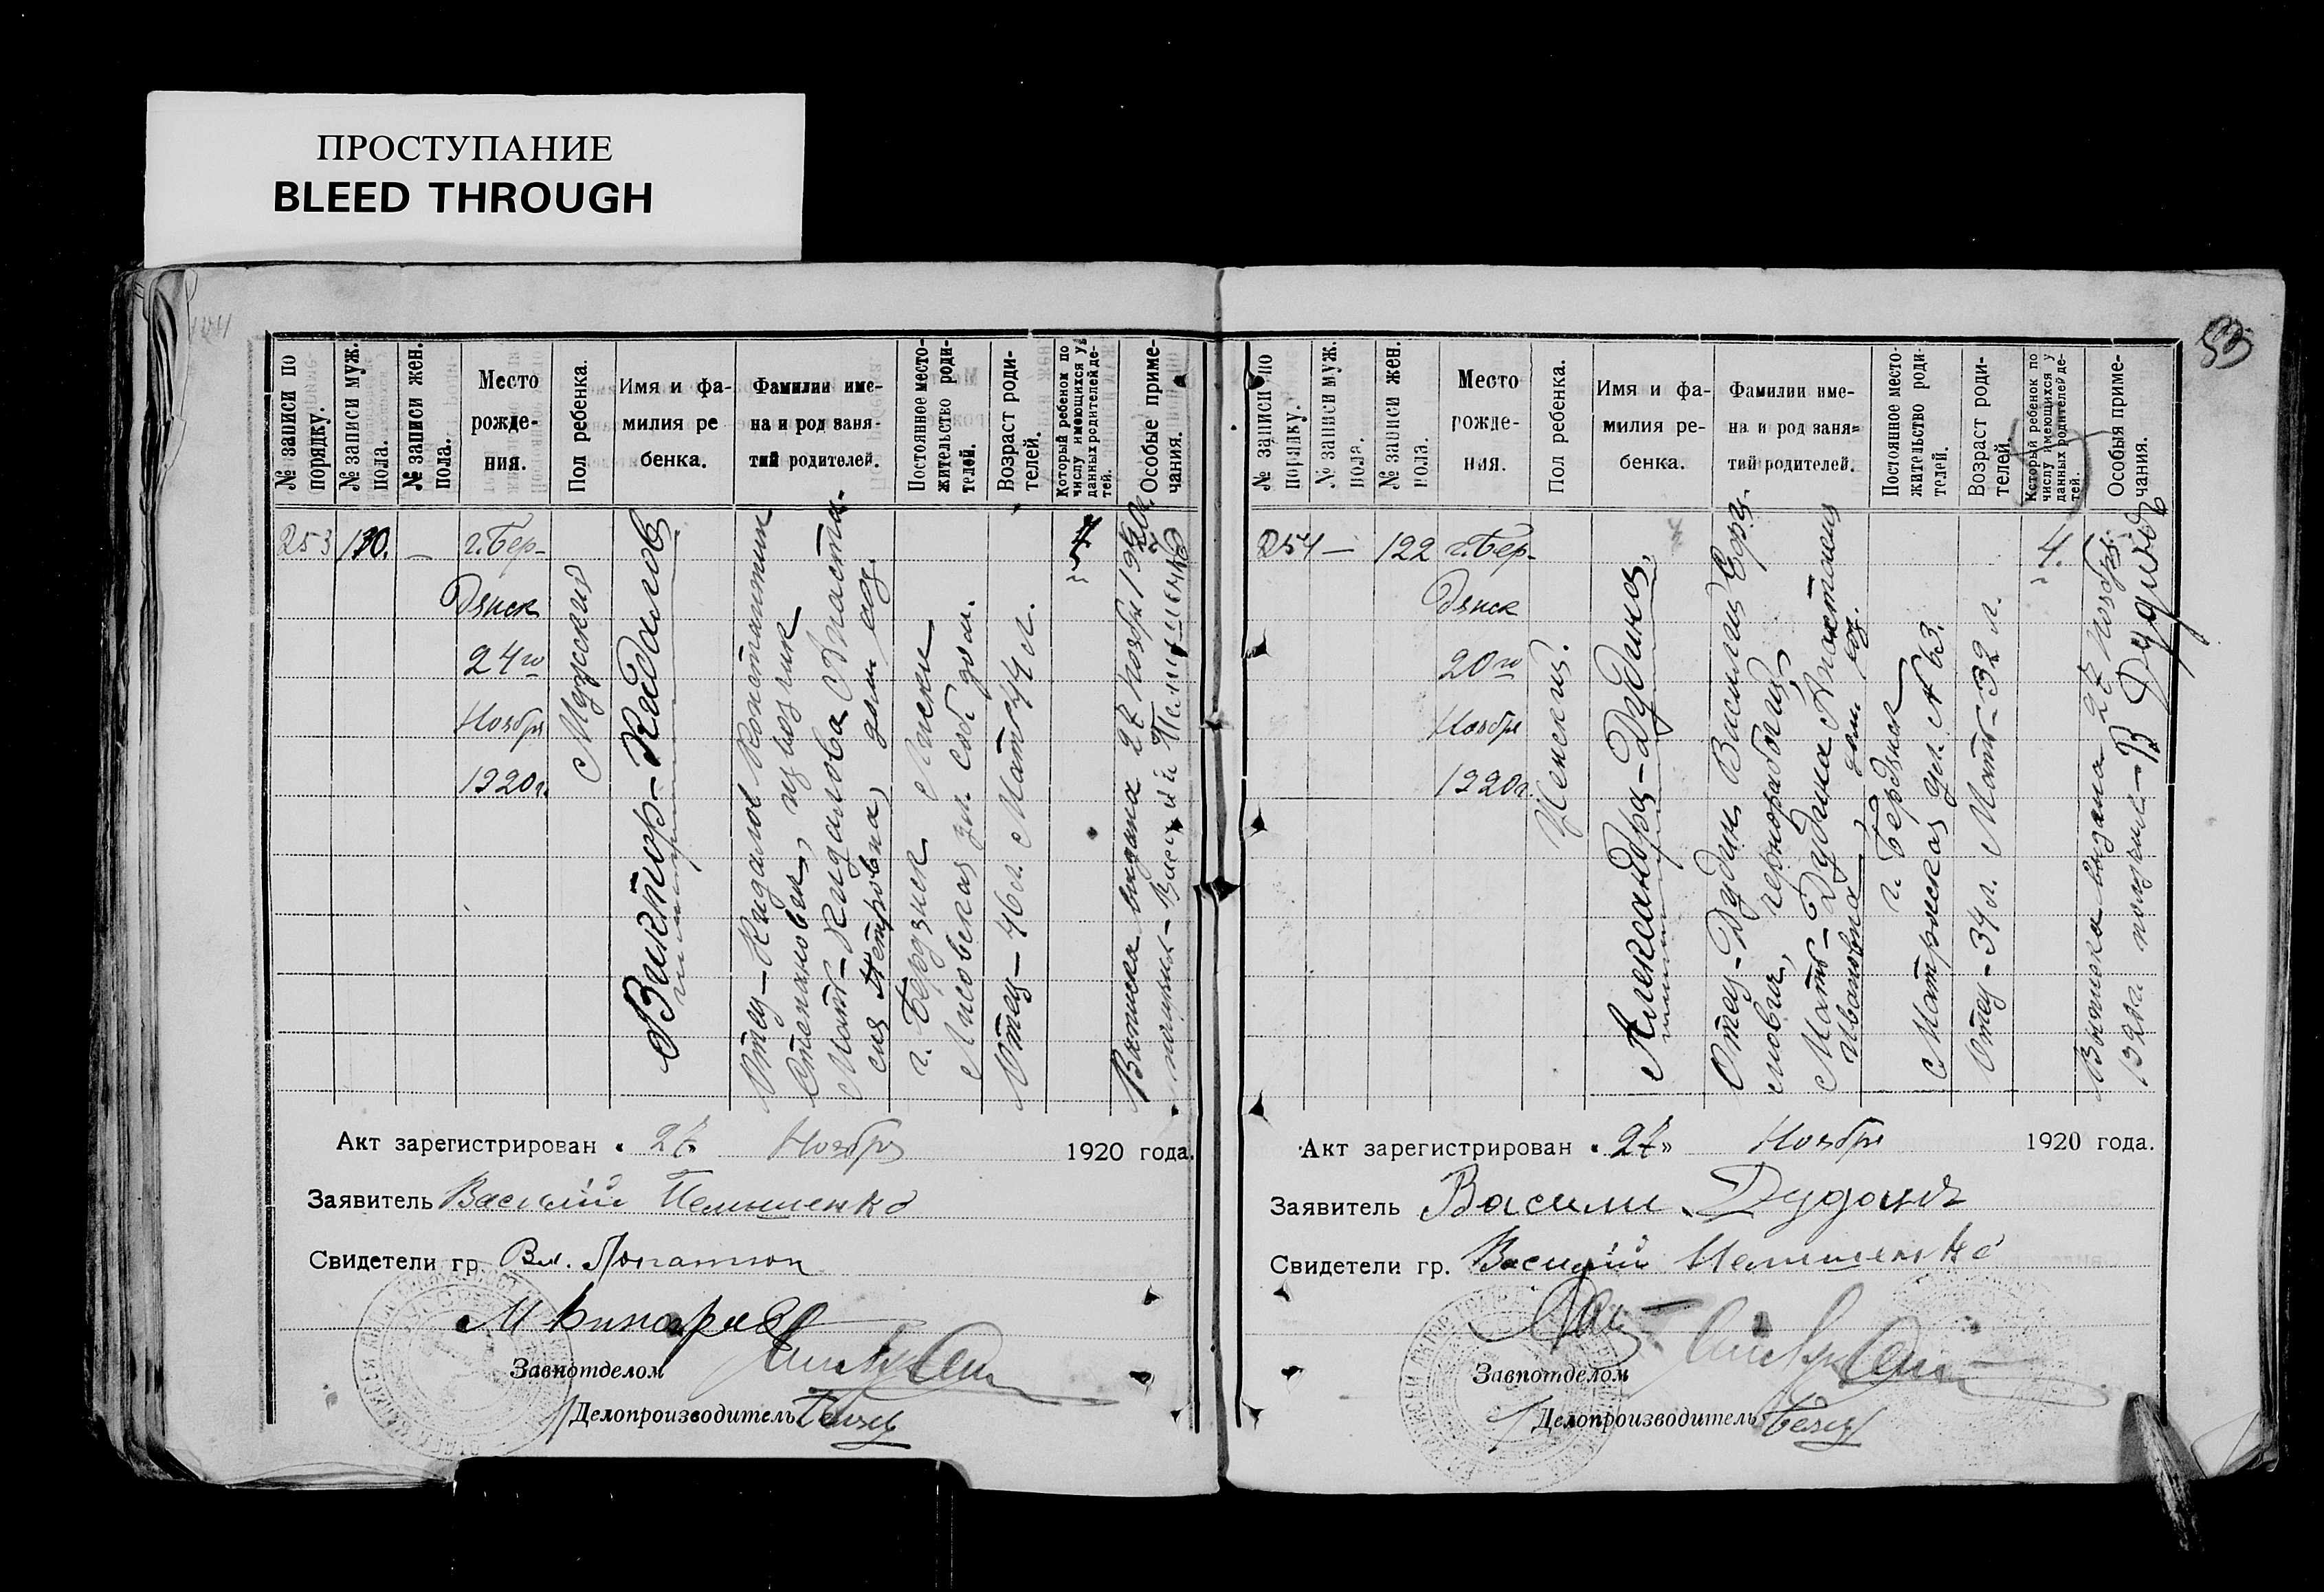 ПРОСТУПАНИЕ
BLEED THROUGH
№ записи по
порядку.
№ записи муж.
пола.
№ записи жен.
пола.
Место
рожде-
ния.
Пол ребенка.
Имя и фа-
милия ре
бенка.
Фамилии име-
на и род заня-
тий родителей.
Постоянное место-
жительство роди-
телей.
Возраст роди-
телей.
Который ребенок по
числу имеющихся у
данных родителей де-
тей.
Особые приме-
чания.
253
130.
—
г. Бер-
дянск
24го
Ноября
1920 г.
Мужский
Виктор – Кидалов
Отец – Кидалов Константин
Степанович, извозчик
Мать – Кидалова Анаста-
сия Петровна, дом. хоз.
г. Бердянск Лиски
Лисовская ул. соб дом.
Отец – 46 л. Мать 44 л.
Выписка выдана 27 Ноября 1920 г.
Акт зарегистрирован „ 27 Ноября 1920 года.
Заявитель Василий Пелишенко
Свидетели гр.
Завпотделом
Делопроизводитель
53
№ записи по
порядку.
№ записи муж.
пола.
№ записи жен.
пола.
Место
рожде-
ния.
Пол ребенка.
Имя и фа-
милия ре-
бенка.
Фамилии име-
на и род заня-
тий родителей.
Постоянное место-
жительство роди-
телей.
Возраст роди-
телей.
Который ребенок по
числу имеющихся у
данных родителей де-
тей.
Особыя приме-
чания.
254
—
122
г. Бер-
дянск
20го
Ноября
1920 г.
Женский.
Александра – Дудина
Отец – Дудин Василий Ерем-
мович, чернорабочий,
Мать – Дудина Анастасия
Ивановна, дом. хоз.
г. Бердянск
Матросская ул. № 63.
Отец – 34 л. Мать – 32 л.
4.
Выписка выдана 27 Ноября
1920 г. получил – В Дудинъ
Акт зарегистрирован „27" Ноября 1920 года.
Заявитель Васили Дудинъ
Свидетели гр. Василий Пелишенко
Завпотделом
Делопроизводитель